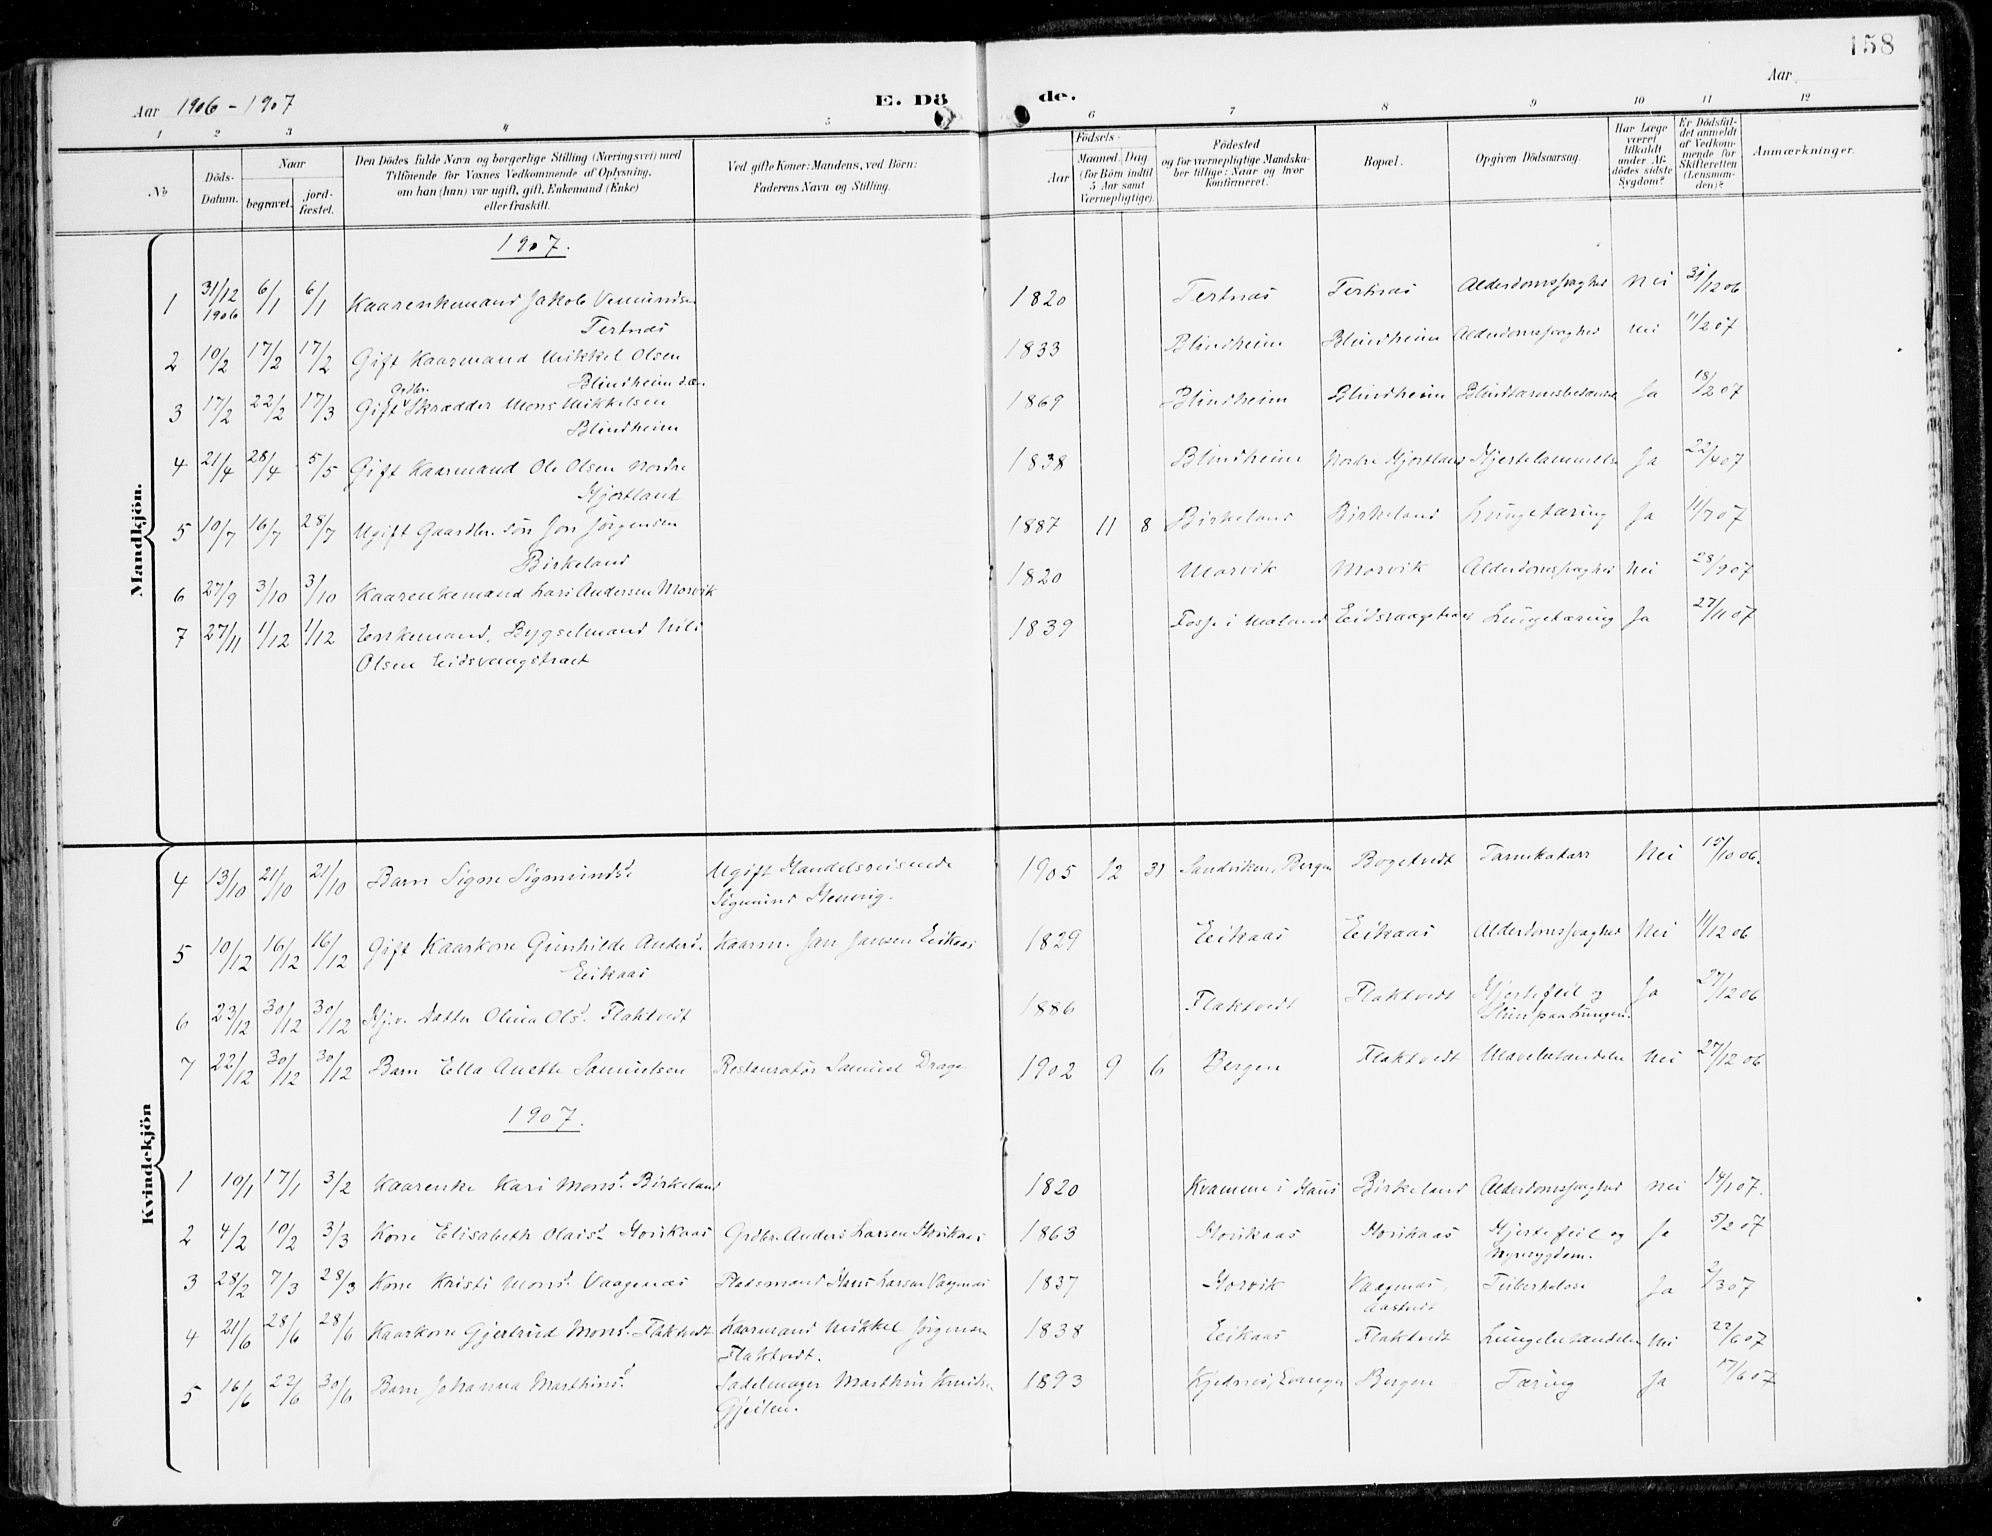 158
Aar 1906-1907
E. Dö de.
Aar
1 2 3 4 5 6 7 8 9 10 11 12
No
Döds-Datum.
Naar
begravet.
jord-fæstet.
Den Dödes fulde Navn og borgerlige Stilling (Næringsvei) med
Tilföiende for Voxnes Vedkommende af Oplysning,
om han (hun) var ugift, gift, Enkemand (Enke)
eller fraskilt.
Ved gifte Koner: Mandens, ved Börn:
Faderens Navn og Stilling.
Födsels-
Aar
Maaned Dag
(for Börn indtil
5 Aar samt
Værnepligtige).
Födested
og for værnepligtige Mandska-
ber tillige: Naar og hvor
konfirmeret.
Bopæl.
Opgiven Dödsaarsag.
Har Læge
været
tilkaldt
under Af-
dödes sidste
Sygdom?
Er Dödsfal-
det anmeldt
af Vedkom-
mende for
Skifteretten
(Lensman-
den)?
Anmærkninger.
Mandkjön.
1907.
1 31/12 1906 6/1 6/1 Kaarenkemand Jakob Vemundsen 1820 Tertnæs Tertnæs Alderdomssvaghed Nei 31/12 06
Tertnæs
2 10/2 17/2 17/2 Gift Kaarmand Mikkel Olsen 1833 Blindheim Blindheim Alderdomssvaghed Nei 11/2 07
Blindheim
3 17/2 22/2 17/3 Gift Skrædder Mons Mikkelsen 1869 Blindheim Blindheim Ja 18/2 07
Blindheim
4 21/4 28/4 5/5 Gift Kaarmand Ole Olsen Nordre 1838 Blindheim Nordre Hjortland Hjertelammelse Ja 22/4 07
Hjortland
5 10/7 16/7 28/7 Ugift Gaardbr. Søn Jon Jørgensen 1887 11 8 Birkeland Birkeland Lungetæring Ja 11/7 07
Birkeland
6 27/9 3/10 3/10 Kaarenkemand Lars Andersen Morvik 1820 Morvik Morvik Alderdomssvaghed Nei 28/9 07
7 27/11 1/12 1/12 Enkemand, Bygselmand Nils 1839 Fosse i Eidsvaagstræet Lungetæring Ja 27/11 07
Olsen Eidsvaagstræet
Kvindekjön
4 13/10 21/10 21/10 Barn Signe Sigmundsd. Ugift Handelsreisende 1905 12 31 Sandviken, Bergen Bogetvedt Tarmkatarr Nei 15/10 06.
Sigmund
5 10/12 16/12 16/12 Gift Kaarkone Gunhilde Andersd. Kaarm. Jan Jansen Eikaas 1829 Eikaas Eikaas Alderdomssvaghed Nei 11/12 06
Eikaas
6 23/12 30/12 30/12 Hjv. Datter Olina Olsd. Flaktvedt 1886 Flaktvedt Flaktvedt Hjertefeil og Ja 27/12 06
Slim paa Lungen.
7 22/12 30/12 30/12 Barn Ella Anette Samuelsen Restauratør Samuel Drage 1902 9 6 Bergen Flaktvedt Mavebetændelse Nei 27/12 06
1907.
1 10/1 17/1 3/2 Kaarenke Kari Monsd. Birkeland 1820 Kvamme i Haus Birkeland Alderdomssvaghed Nei 14/1 07.
2 4/2 10/2 3/3 Kone Elisabeth Olaisd. Horikaas Grdbr. Anders Larsen Horikaas 1863 Horikaas Horikaas Hjertefeil og Ja 5/2 07
Nyresygdom.
3 28/2 7/3 28/3 Kone Kristi Monsd. Vaagenæs Pladsmand Hans Larsen Vaagenæs 1837 Horvik Vaagenæs, Tuberkelose Ja 2/3 07
Aastvedt
4 21/6 28/6 28/6 Kaarkone Gjertrud Monsd. Flaktvedt Kaarmand Mikkel Jørgensen 1838 Eikaas Flaktvedt Lungebetændelse Nei 22/6 07
Flaktvedt.
5 16/6 22/6 30/6 Barn Johanna Marthinsd. Sadelmager Marthin 1893 Bergen Tæring Ja 17/6 07
Gjeilen.